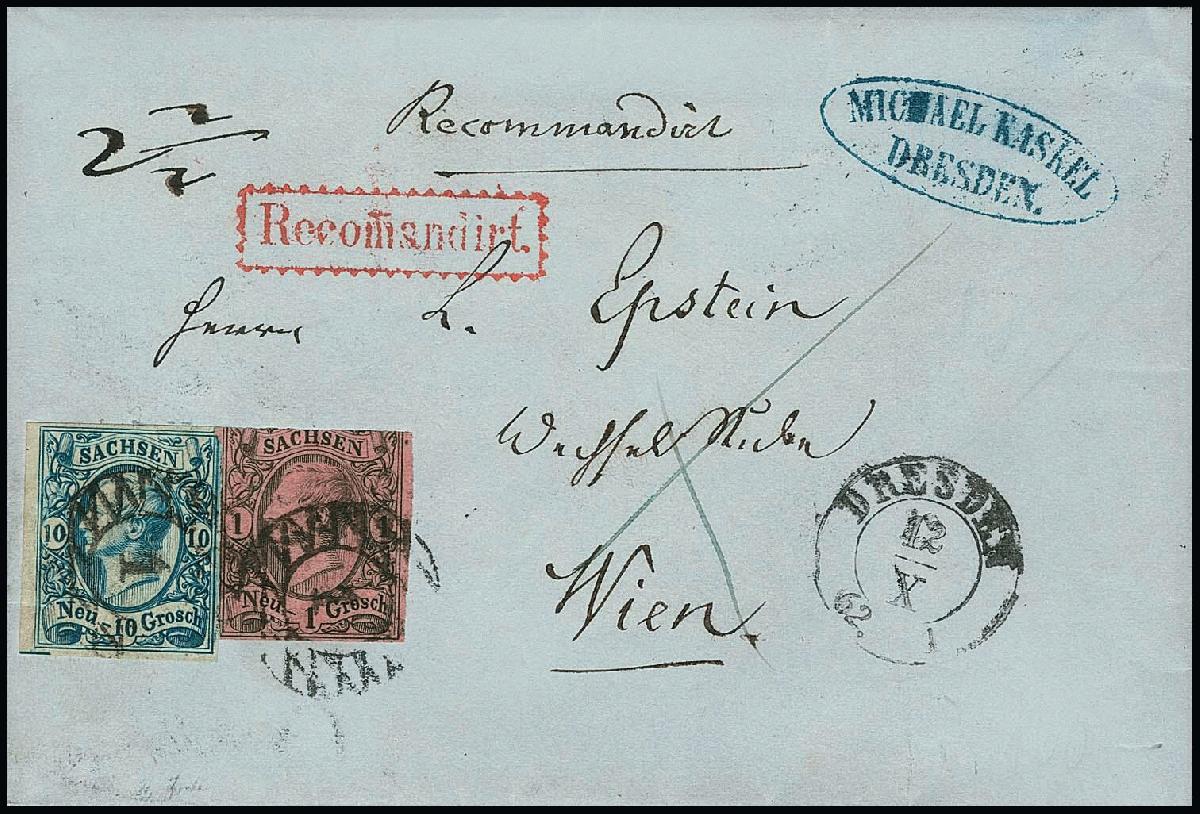 Recommandirt
MICHAEL KASKEL
DRESDEN.
2 1/2
Recom̄andirt.
Herrn L. Epstein
Wechsel
Wien.
SACHSEN
10 10
Neu- 10 Grosch
SACHSEN
1 1
Neu- 1 Grosch
DRESDEN
12
X
62.